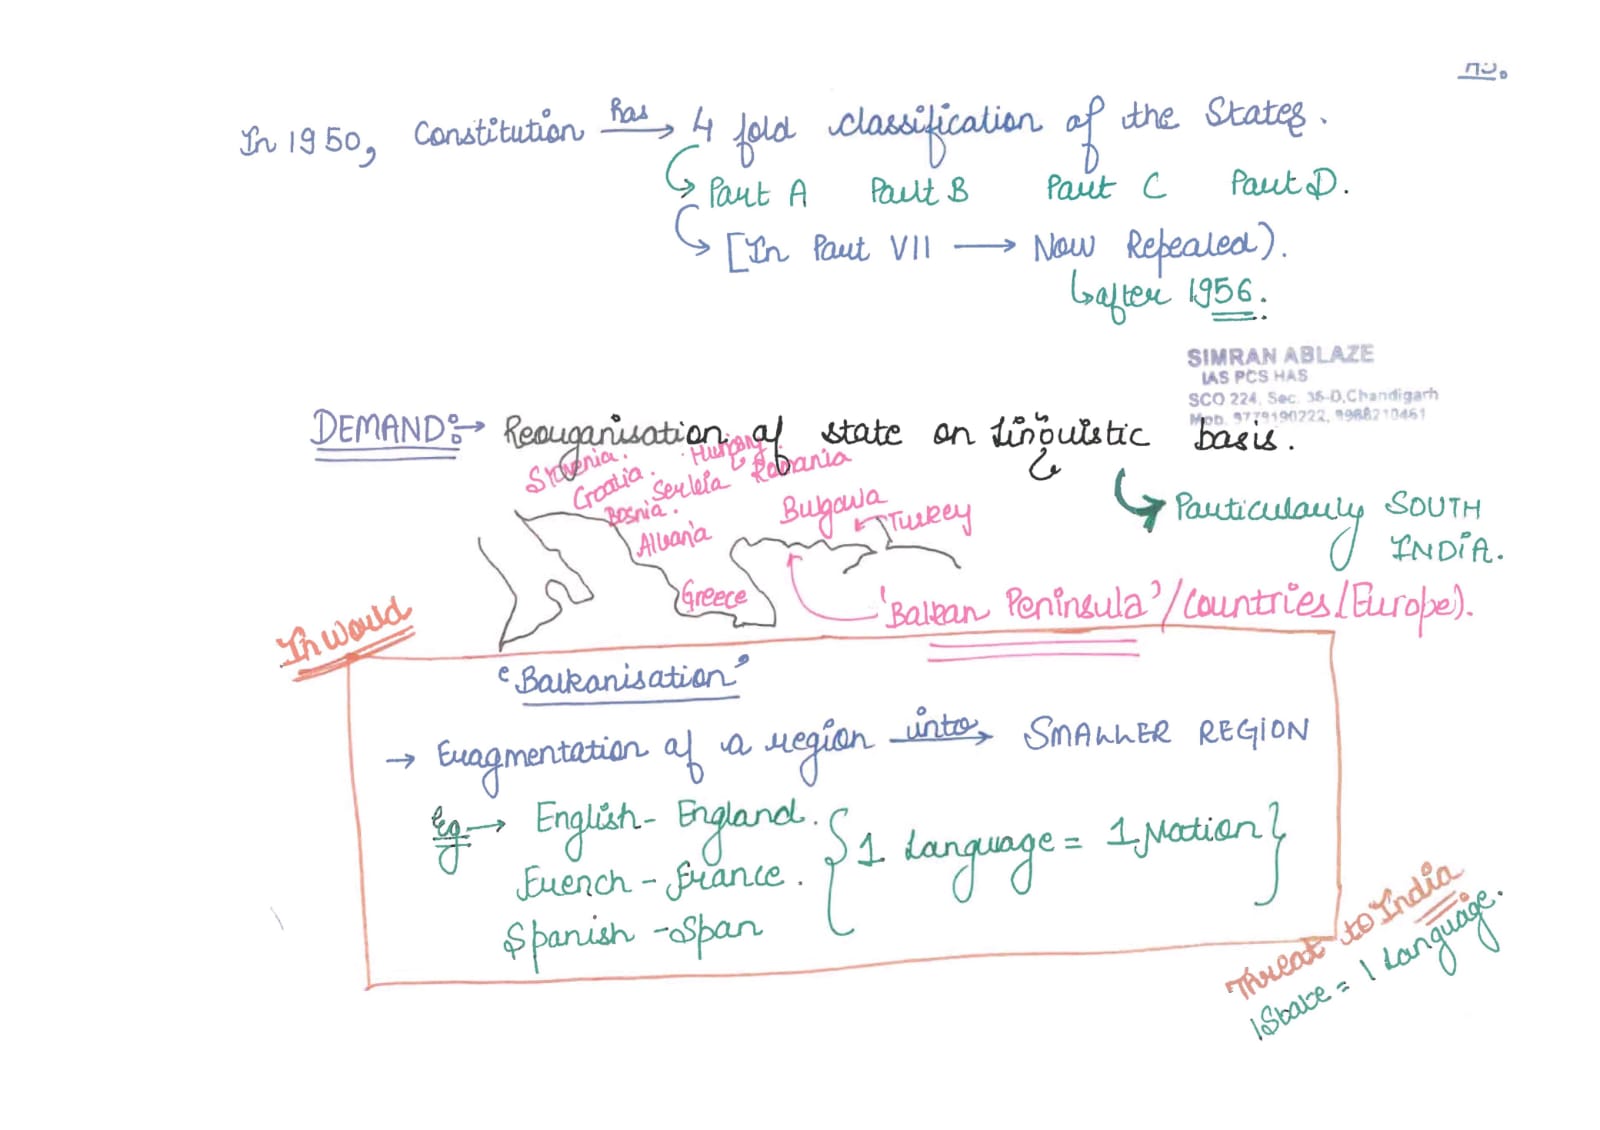 In 1950, Constitution has → 4 fold classification of the States.
↳ Part A Part B Part C Part D.
↳ [In Part VII → Now Repealed).
↳ after 1956.
SIMRAN ABLAZE
IAS PCS HAS
SCO 224, Sec. 35-D, Chandigarh
Mob. 9779190222, 9988210461
DEMAND:→ Reorganisation of state on Linguistic basis.
↳ Particularly SOUTH
INDIA.
Slovenia.
Croatia.
Bosnia.
Hungary
Serbia
Romania
Albania
Bulgaria
Turkey
Greece
'Balkan Peninsula'/Countries (Europe).
In World
"Balkanisation"
→ Fragmentation of a region into → SMALLER REGION
Eg → English - England.
French - France.
Spanish - Span
{1 Language = 1 Nation}
Threat to India
1 State = 1 Language.